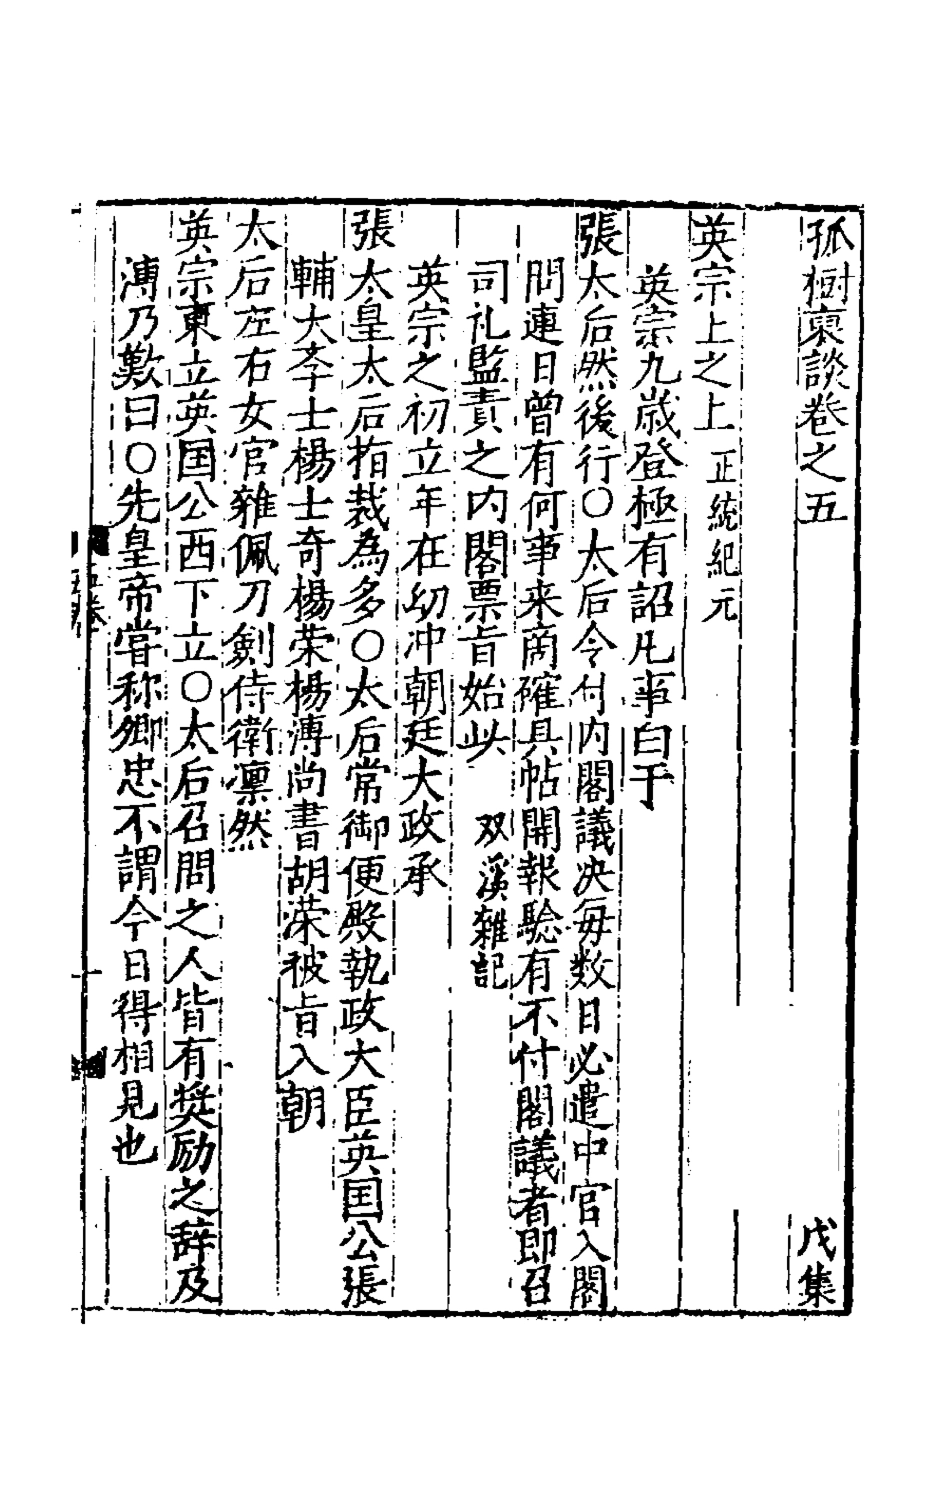 孤樹裒談卷之五 戊集
英宗上之上 正統紀元
英宗九歲登極有詔凡事白于
張太后然後行○太后令付內閣議决每数日必遣中官入閣
問連日曾有何事来商確具帖開報驗有不付閣議者即召
司礼監責之內閣票旨始此 双溪雜記
英宗之初立年在幼冲朝廷大政承
張太皇太后指裁為多○太后常御便殿執政大臣英国公張
輔大李士楊士奇楊荣楊溥尚書胡濙被旨入朝
太后左右女官雜佩刀劍侍衛凛然
英宗東立英国公西下立○太后召問之人皆有奨励之辞及
溥乃歎曰○先皇帝嘗称卿忠不謂今日得相見也
五卷